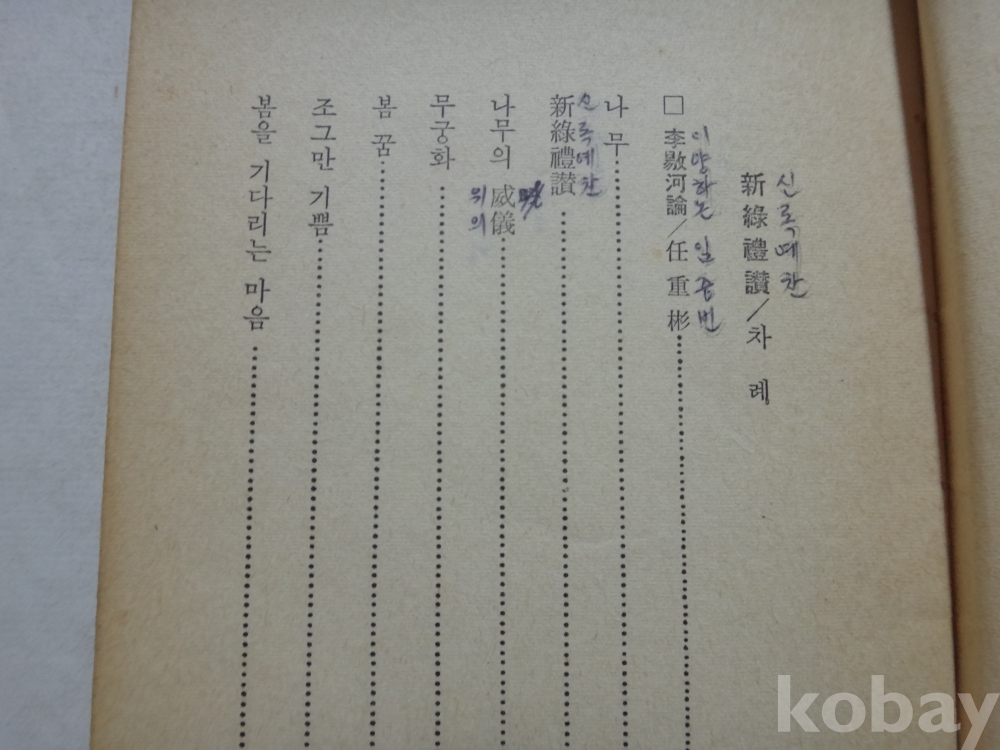 신록예찬
新綠禮讚/차례
이양하논 임중빈
□ 李敭河論/任重彬
나무
신록예찬
新綠禮讚
나무의 威儀
위의
무궁화
봄 꿈
조그만 기쁨
봄을 기다리는 마음
kobay